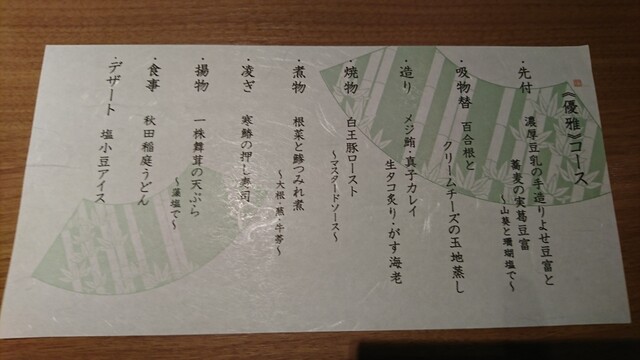 《優雅》コース
・先付 濃厚豆乳の手造りよせ豆富と
蕎麦の実葛豆富
～山葵と珊瑚塩で～
・吸物替 百合根と
クリームチーズの玉地蒸し
・造り メジ鮪・真子カレイ
生タコ炙り・がす海老
・焼物 白王豚ロースト
～マスタードソース～
・煮物 根菜と鰺つみれ煮
～大根・蕪・牛蒡～
・凌ぎ 寒鰆の押し寿司
・揚物 一株舞茸の天ぷら
～藻塩で～
・食事 秋田稲庭うどん
・デザート 塩小豆アイス